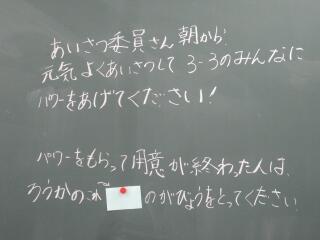 あいさつ委員さん朝から
元気よくあいさつして 3-3のみんなに
パワーをあげてください!
パワーをもらって用意が終わった人は、
ろうかのこれ のがびょうをとってください